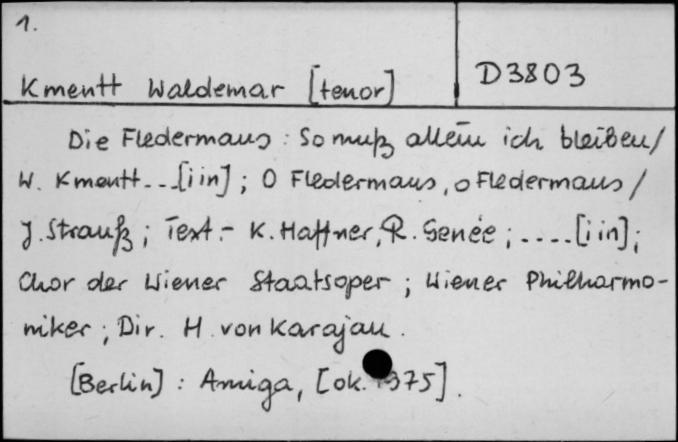 1.
Kmentt Waldemar [tenor]
D3803
Die Fledermaus : So muß allein ich bleiben /
W. Kmentt...[i in] ; O Fledermaus, o Fledermaus /
J. Strauß ; Text.- K. Haffner, R. Genée ; ....[i in] ;
Chor der Wiener Staatsoper ; Wiener Philharmo-
niker ; Dir. H. von Karajan.
[Berlin] : Amiga, [ok. 1975].